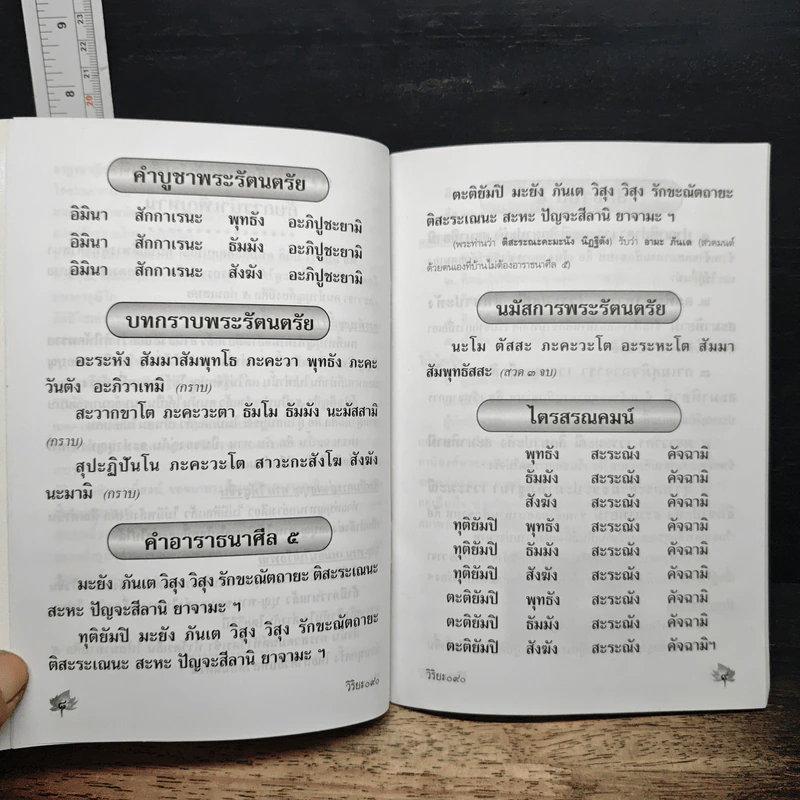 9
8
23
22
21
20
คำบูชาพระรัตนตรัย
อิมินา สักกาเรนะ พุทธัง อะภิปูชะยามิ
อิมินา สักกาเรนะ ธัมมัง อะภิปูชะยามิ
อิมินา สักกาเรนะ สังฆัง อะภิปูชะยามิ
บทกราบพระรัตนตรัย
อะระหัง สัมมาสัมพุทโธ ภะคะวา พุทธัง ภะคะ
วันตัง อะภิวาเทมิ (กราบ)
สะวากขาโต ภะคะวะตา ธัมโม ธัมมัง นะมัสสามิ
(กราบ)
สุปะฏิปันโน ภะคะวะโต สาวะกะสังโฆ สังฆัง
นะมามิ (กราบ)
คำอาราธนาศีล ๕
มะยัง ภันเต วิสุง วิสุง รักขะณัตถายะ ติสะระเณนะ
สะหะ ปัญจะสีลานิ ยาจามะ ฯ
ทุติยัมปิ มะยัง ภันเต วิสุง วิสุง รักขะณัตถายะ
ติสะระเณนะ สะหะ ปัญจะสีลานิ ยาจามะ ฯ
๘
วิริยะ๐๙๐
ตะติยัมปิ มะยัง ภันเต วิสุง วิสุง รักขะณัตถายะ
ติสะระเณนะ สะหะ ปัญจะสีลานิ ยาจามะ ฯ
(พระท่านว่า ติสะระณะคะมะนัง นิฏฐิตัง) รับว่า อามะ ภันเต (สวดมนต์
ด้วยตนเองที่บ้านไม่ต้องอาราธนาศีล ๕)
นมัสการพระรัตนตรัย
นะโม ตัสสะ ภะคะวะโต อะระหะโต สัมมา
สัมพุทธัสสะ (สวด ๓ จบ)
ไตรสรณคมน์
พุทธัง สะระณัง คัจฉามิ
ธัมมัง สะระณัง คัจฉามิ
สังฆัง สะระณัง คัจฉามิ
ทุติยัมปิ พุทธัง สะระณัง คัจฉามิ
ทุติยัมปิ ธัมมัง สะระณัง คัจฉามิ
ทุติยัมปิ สังฆัง สะระณัง คัจฉามิ
ตะติยัมปิ พุทธัง สะระณัง คัจฉามิ
ตะติยัมปิ ธัมมัง สะระณัง คัจฉามิ
ตะติยัมปิ สังฆัง สะระณัง คัจฉามิฯ
วิริยะ๐๙๐
๙